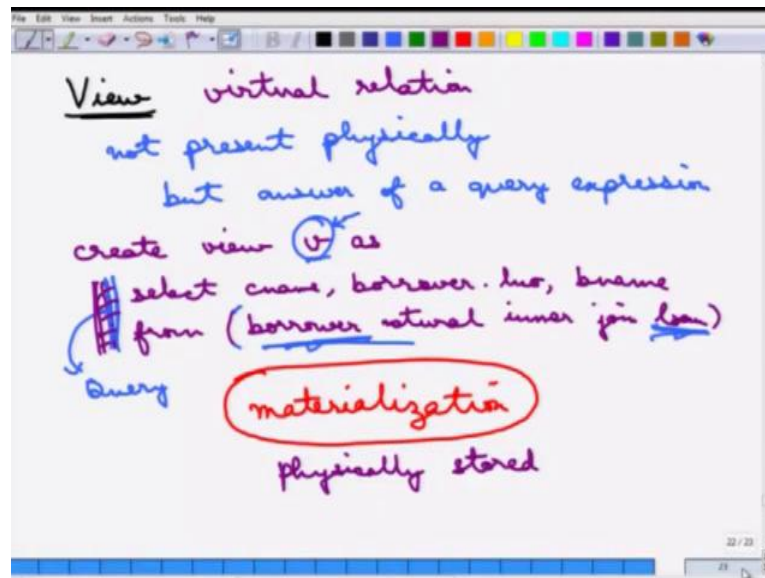 File Edit View Insert Actions Tools Help
View virtual relation
not present physically
but answer of a query expression
create view v as
select cname, borrower.lno, bname
from (borrower natural inner join loan)
Query
materialization
physically stored
22 / 23
23